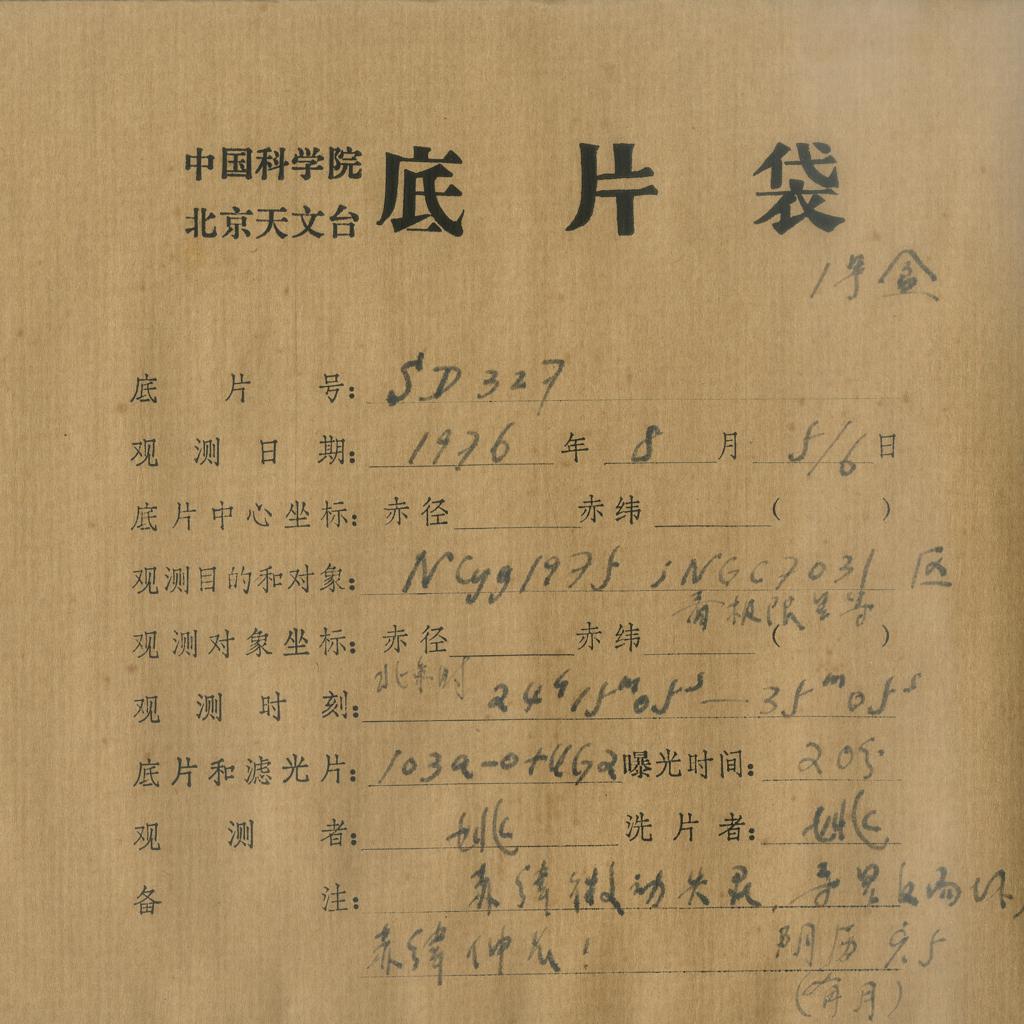 中国科学院
北京天文台
底片袋
1号盒
底片号: SD 327
观测日期: 1976 年 8 月 5/6 日
底片中心坐标: 赤径 赤纬 ( )
观测目的和对象: N Cyg 1975 ; NGC 7031 区
极限星等
观测对象坐标: 赤径 赤纬 ( )
北京时
观测时刻: 24h15m05s — 35m05s
底片和滤光片: 103a-0+GG2 曝光时间: 20分
观测者: 姚 洗片者: 姚
备注: 赤纬微动失灵,
赤纬伸长! 阴历 5
(有月)